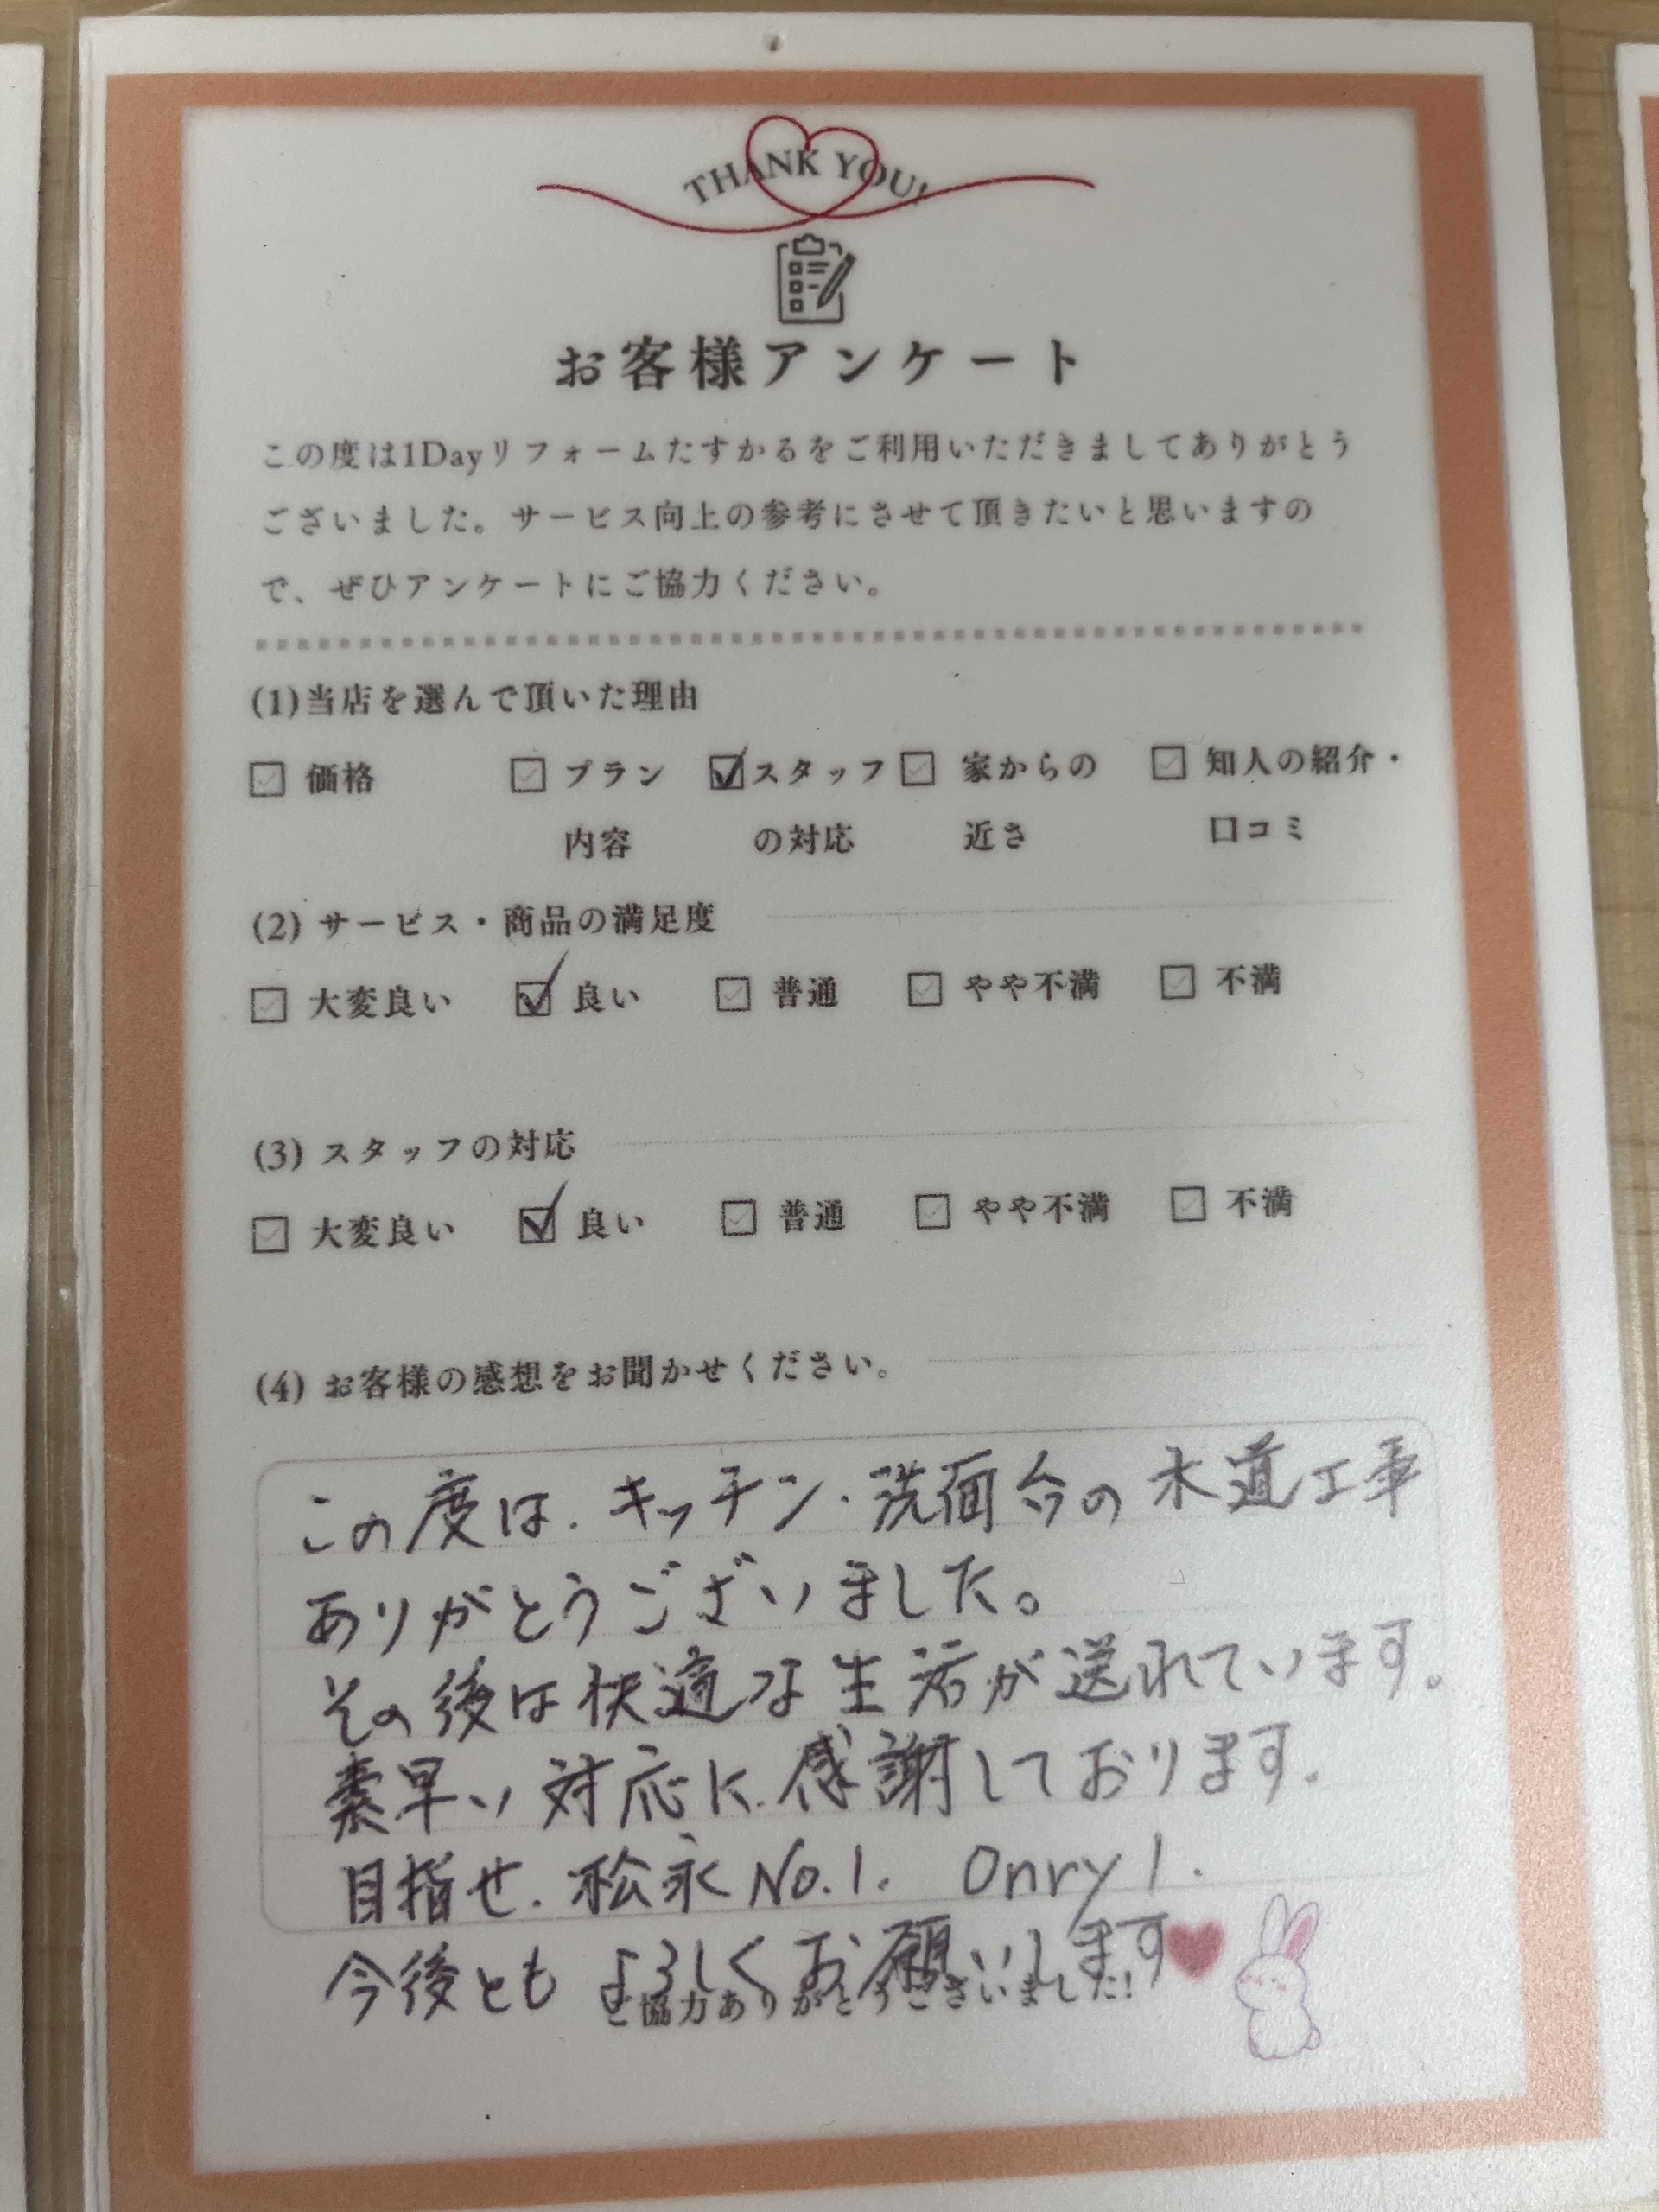 THANK YOU!
お客様アンケート
この度は1Dayリフォームたすかるをご利用いただきましてありがとう
ございました。サービス向上の参考にさせて頂きたいと思いますの
で、ぜひアンケートにご協力ください。
(1)当店を選んで頂いた理由
価格 プラン スタッフ 家からの 知人の紹介・
内容 の対応 近さ 口コミ
(2) サービス・商品の満足度
大変良い 良い 普通 やや不満 不満
(3) スタッフの対応
大変良い 良い 普通 やや不満 不満
(4) お客様の感想をお聞かせください。
この度は、キッチン・洗面台の水道工事
ありがとうございました。
その後は快適な生活が送れています。
素早い対応に、感謝しております。
目指せ、松永No.1. Onry 1.
今後ともよろしくお願いします♥
ご協力ありがとうございました!